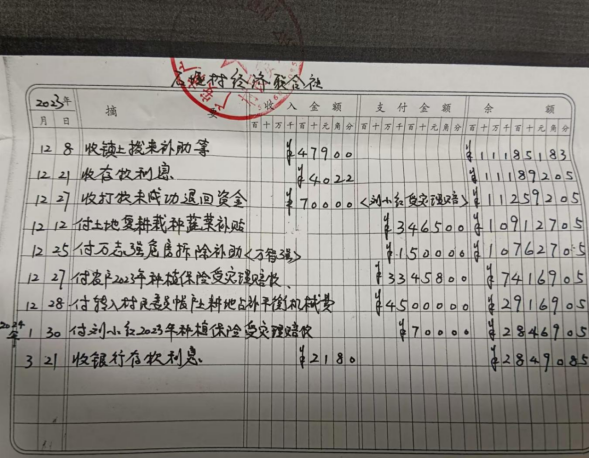 石塘村经济联合社
2023年 摘 要 收入金额 支付金额 余额
月 日 百十万千百十元角分 百十万千百十元角分 百十万千百十元角分
12 8 收镇上拨来补助等 ¥47900 ¥11185183
12 21 收存款利息 ¥4022 ¥11189205
12 27 收打款未成功退回资金 ¥70000 <刘小红受灾理赔> ¥11259205
12 12 付土地复耕栽种蔬菜补贴 ¥346500 ¥10912705
12 25 付万志强危房拆除补助<万智强> ¥150000 ¥10762705
12 27 付农户2023年种植保险受灾理赔款、 ¥3345800 ¥7416905
12 28 付转入村民委员帐户土耕地占补平衡机械费 ¥4500000 ¥2916905
2024年 1 30 付刘小红2023年种植保险受灾理赔款 ¥70000 ¥2846905
3 21 收银行存款利息 ¥2180 ¥2849085